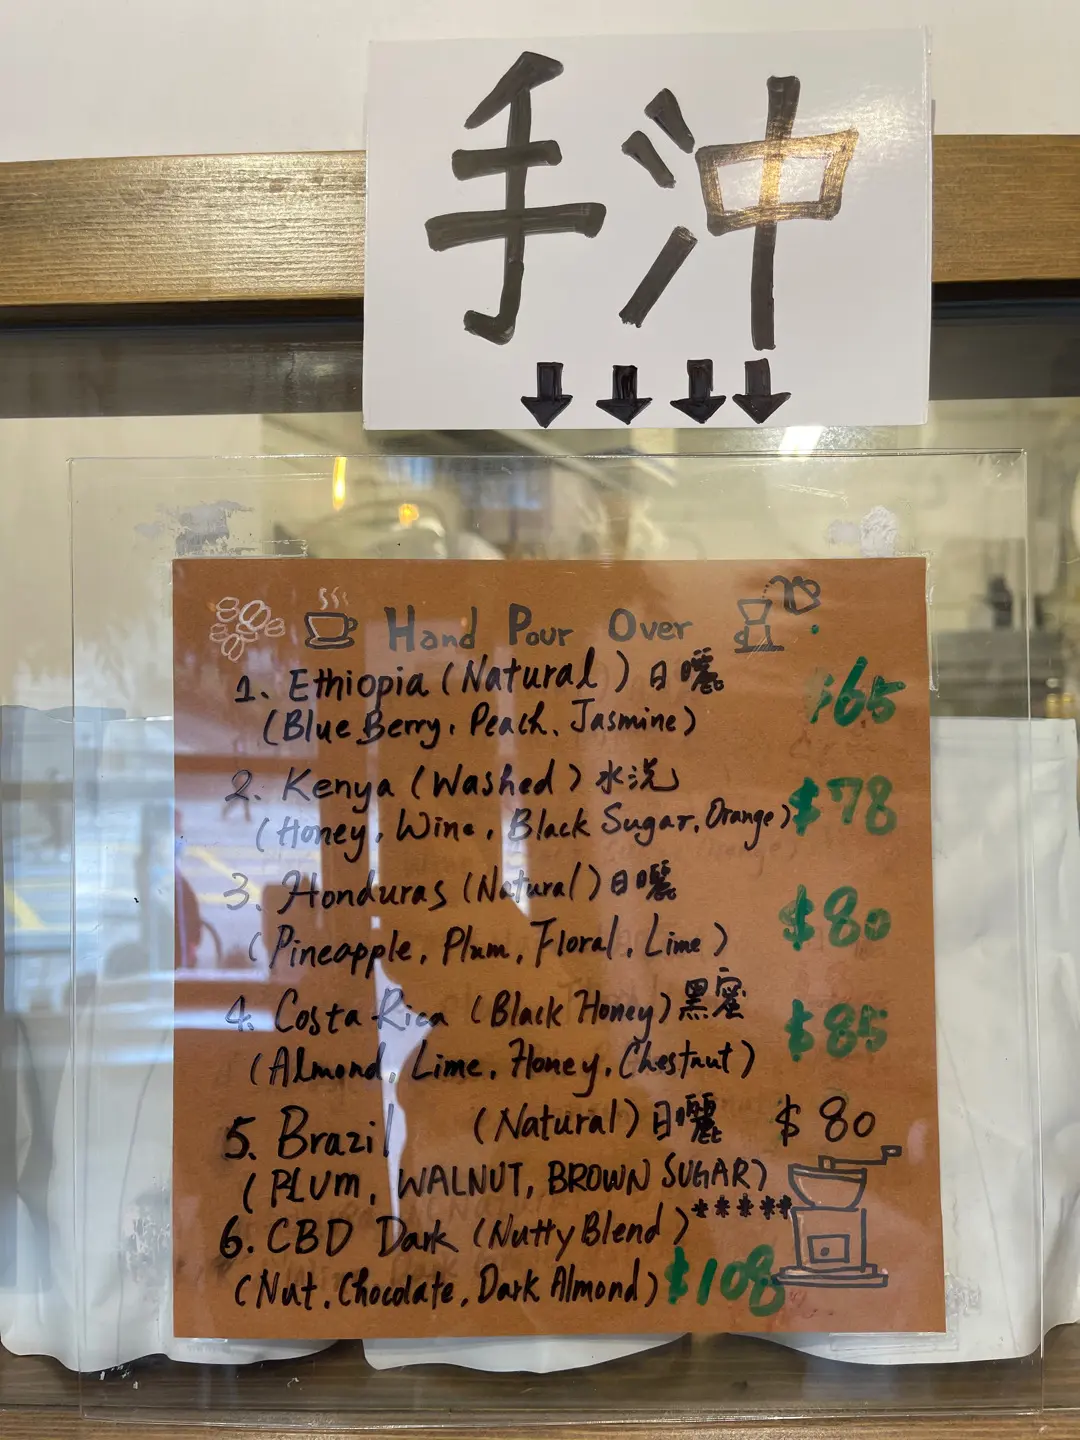 手沖
Hand Pour Over
1. Ethiopia (Natural) 日曬 $65
(Blue Berry, Peach, Jasmine)
2. Kenya (Washed) 水洗
(Honey, Wine, Black Sugar, Orange) $78
3. Honduras (Natural) 日曬 $80
(Pineapple, Plum, Floral, Lime)
4. Costa Rica (Black Honey) 黑蜜 $85
(Almond, Lime, Honey, Chestnut)
5. Brazil (Natural) 日曬 $80
(PLUM, WALNUT, BROWN SUGAR)
6. CBD Dark (Nutty Blend) *****
(Nut, Chocolate, Dark Almond) $108